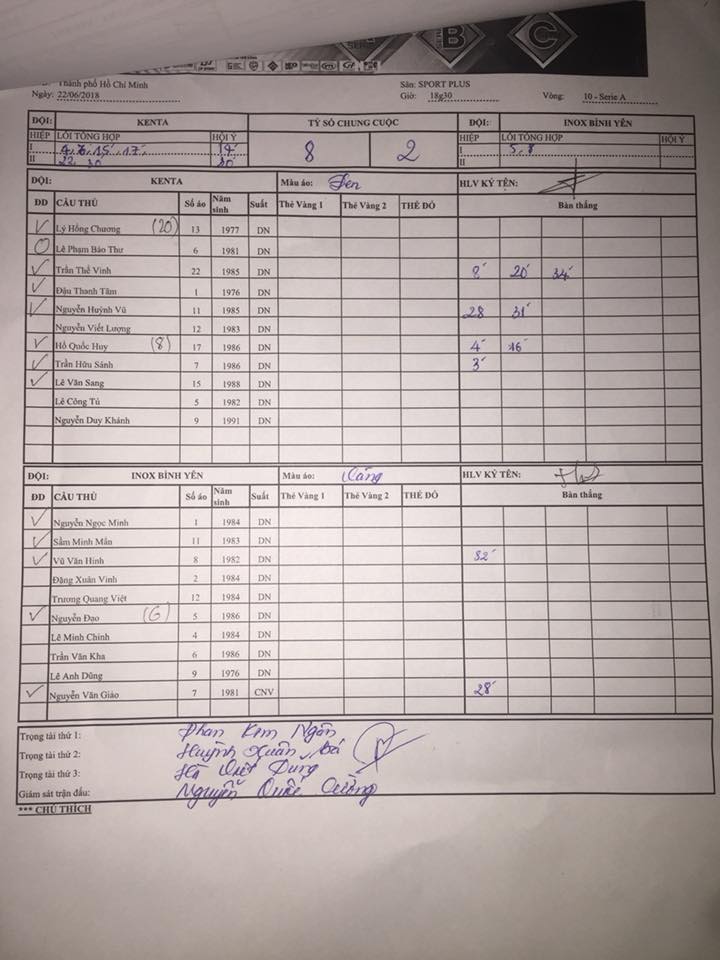 B C
Thành phố Hồ Chí Minh Sân: SPORT PLUS
Ngày: 22/06/2018 Giờ: 18g30 Vòng: 10 - Serie A
ĐỘI: KENTA TỶ SỐ CHUNG CUỘC ĐỘI: INOX BÌNH YÊN
HIỆP LỖI TỔNG HỢP HỘI Ý 8 2 HIỆP LỖI TỔNG HỢP HỘI Ý
I 15, 17, I 5, 8
II 22 30 II
ĐỘI: KENTA Màu áo: Đen HLV KÝ TÊN:
ĐD CẦU THỦ Số áo Năm sinh Suất Thẻ Vàng 1 Thẻ Vàng 2 THẺ ĐỎ Bàn thắng
Lý Hồng Chương (20) 13 1977 DN
Lê Phạm Bảo Thư 6 1981 DN
Trần Thế Vinh 22 1985 DN 8' 20' 34'
Đậu Thanh Tâm 1 1976 DN
Nguyễn Huỳnh Vũ 11 1985 DN 28 31'
Nguyễn Viết Lượng 12 1983 DN
Hồ Quốc Huy (8) 17 1986 DN 4' 16'
Trần Hữu Sánh 7 1986 DN 3'
Lê Văn Sang 15 1988 DN
Lê Công Tú 5 1982 DN
Nguyễn Duy Khánh 9 1991 DN
ĐỘI: INOX BÌNH YÊN Màu áo: HLV KÝ TÊN:
ĐD CẦU THỦ Số áo Năm sinh Suất Thẻ Vàng 1 Thẻ Vàng 2 THẺ ĐỎ Bàn thắng
Nguyễn Ngọc Minh 1 1984 DN
Sầm Minh Mẫn 11 1983 DN
Vũ Văn Hinh 8 1982 DN 32'
Đặng Xuân Vinh 2 1984 DN
Trương Quang Việt 12 1984 DN
Nguyễn Đạo (6) 5 1986 DN
Lê Minh Chinh 4 1984 DN
Trần Văn Kha 6 1986 DN
Lê Anh Dũng 9 1976 DN
Nguyễn Văn Giáo 7 1981 CNV 28'
Trọng tài thứ 1: Phan Kim Ngân
Trọng tài thứ 2: Huỳnh Xuân
Trọng tài thứ 3: Hồ Việt Dũng
Giám sát trận đấu: Nguyễn Quốc Cường
*** CHÚ THÍCH